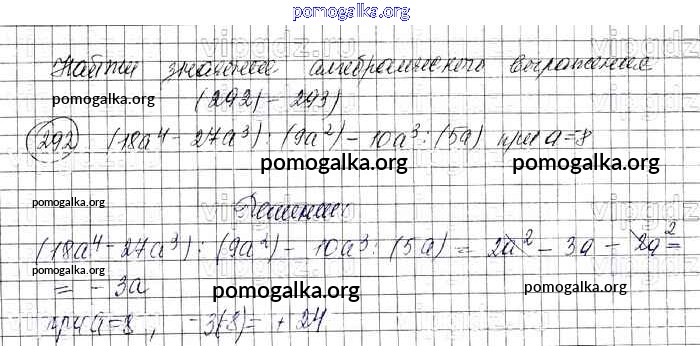 pomogalka.org
Найти значение алгебраического выражения
pomogalka.org
(292) - 293)
292 (18a⁴ - 27a³) : (9a²) - 10a³ : (5a) при a=8
pomogalka.org pomogalka.org
pomogalka.org
Решение
(18a⁴ - 27a³) : (9a²) - 10a³ : (5a) = 2a² - 3a - 2a² =
pomogalka.org
= - 3a
pomogalka.org pomogalka.org
при a=8, -3(-8) = +24